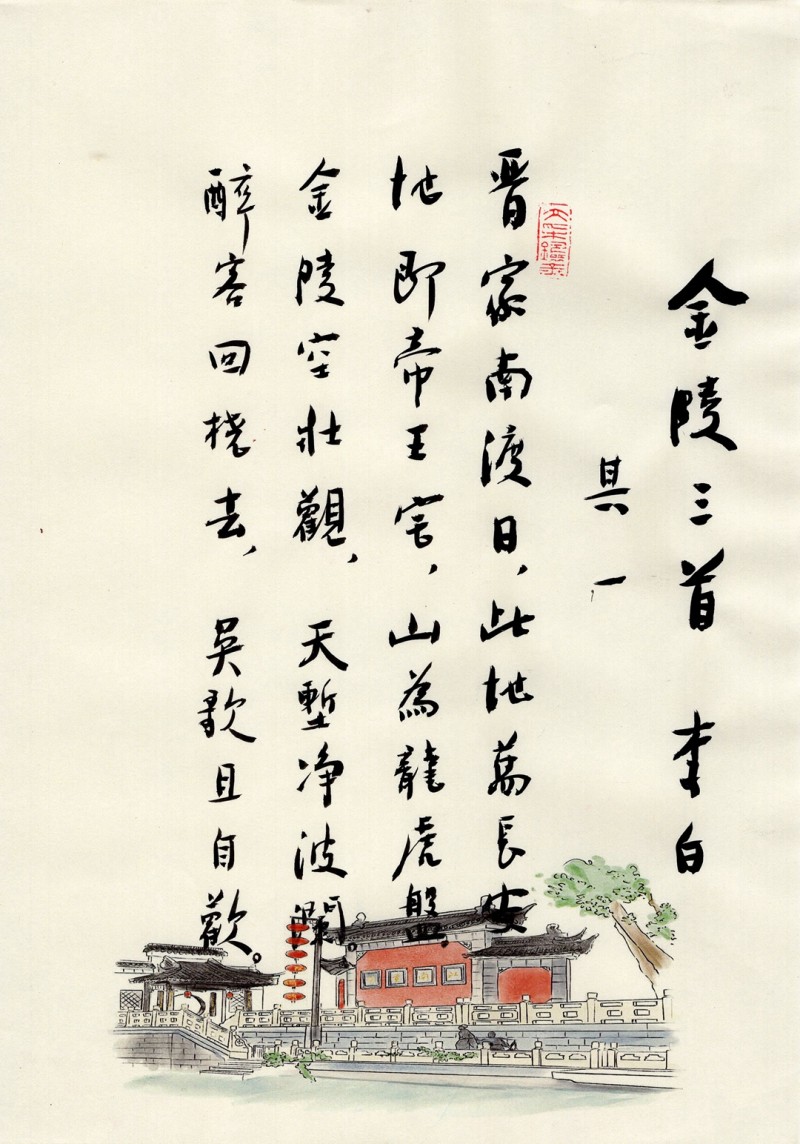 金陵三首 李白
其一
晋家南渡日，此地舊長安
地即帝王宅，山為龍虎盤。
金陵空壯觀，天塹净波瀾。
醉客回桡去，吳歌且自歡。